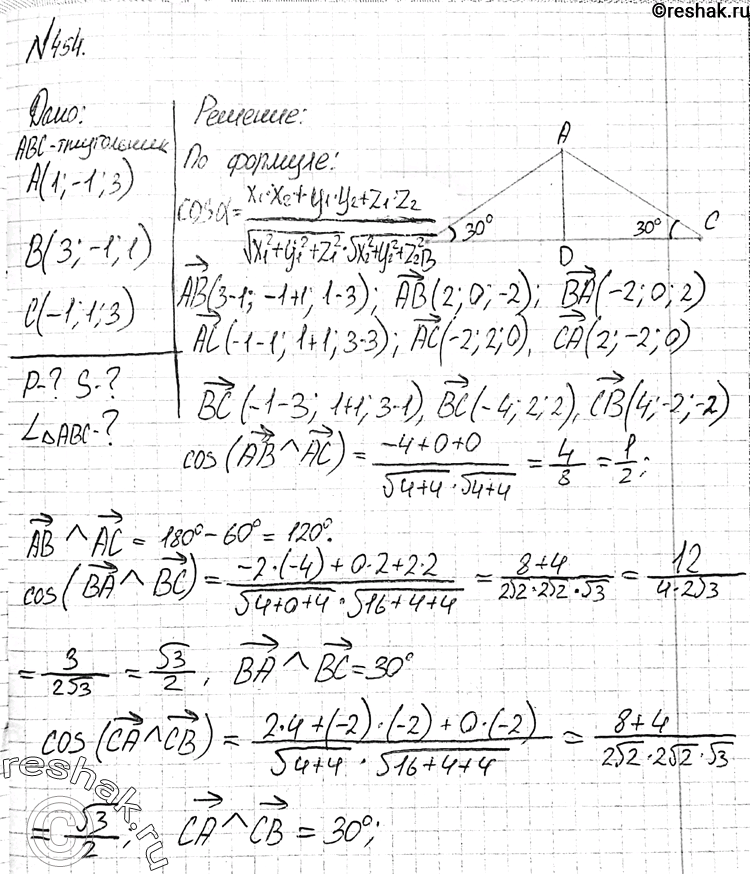 ©reshak.ru
N454.
Дано:
ABC-треугольник
A(1;-1;3)
B(3;-1;1)
C(-1;1;3)
P-? S-?
∠△ABC-?
Решение:
По формуле:
cosα = (x₁·x₂+y₁·y₂+z₁·z₂)/(√(x₁²+y₁²+z₁²)·√(x₂²+y₂²+z₂²))
A
B
30°
D
30°
C
AB(3-1; -1+1; 1-3); AB(2; 0; -2); BA(-2; 0; 2)
AC(-1-1; 1+1; 3-3); AC(-2; 2; 0), CA(2; -2; 0)
BC(-1-3; 1+1; 3-1), BC(-4; 2; 2), CB(4; -2; -2)
cos(AB^AC) = (-4+0+0)/(√(4+4)·√(4+4)) = 4/8 = 1/2;
AB^AC = 180°-60° = 120°.
cos(BA^BC) = (-2·(-4)+0·2+2·2)/(√(4+0+4)·√(16+4+4)) = (8+4)/(2√2·2√2·√3) = 12/(4·2√3)
= 3/(2√3) = √3/2, BA^BC = 30°
cos(CA^CB) = (2·4+(-2)·(-2)+0·(-2))/(√(4+4)·√(16+4+4)) = (8+4)/(2√2·2√2·√3)
= √3/2; CA^CB = 30°;
reshak.ru